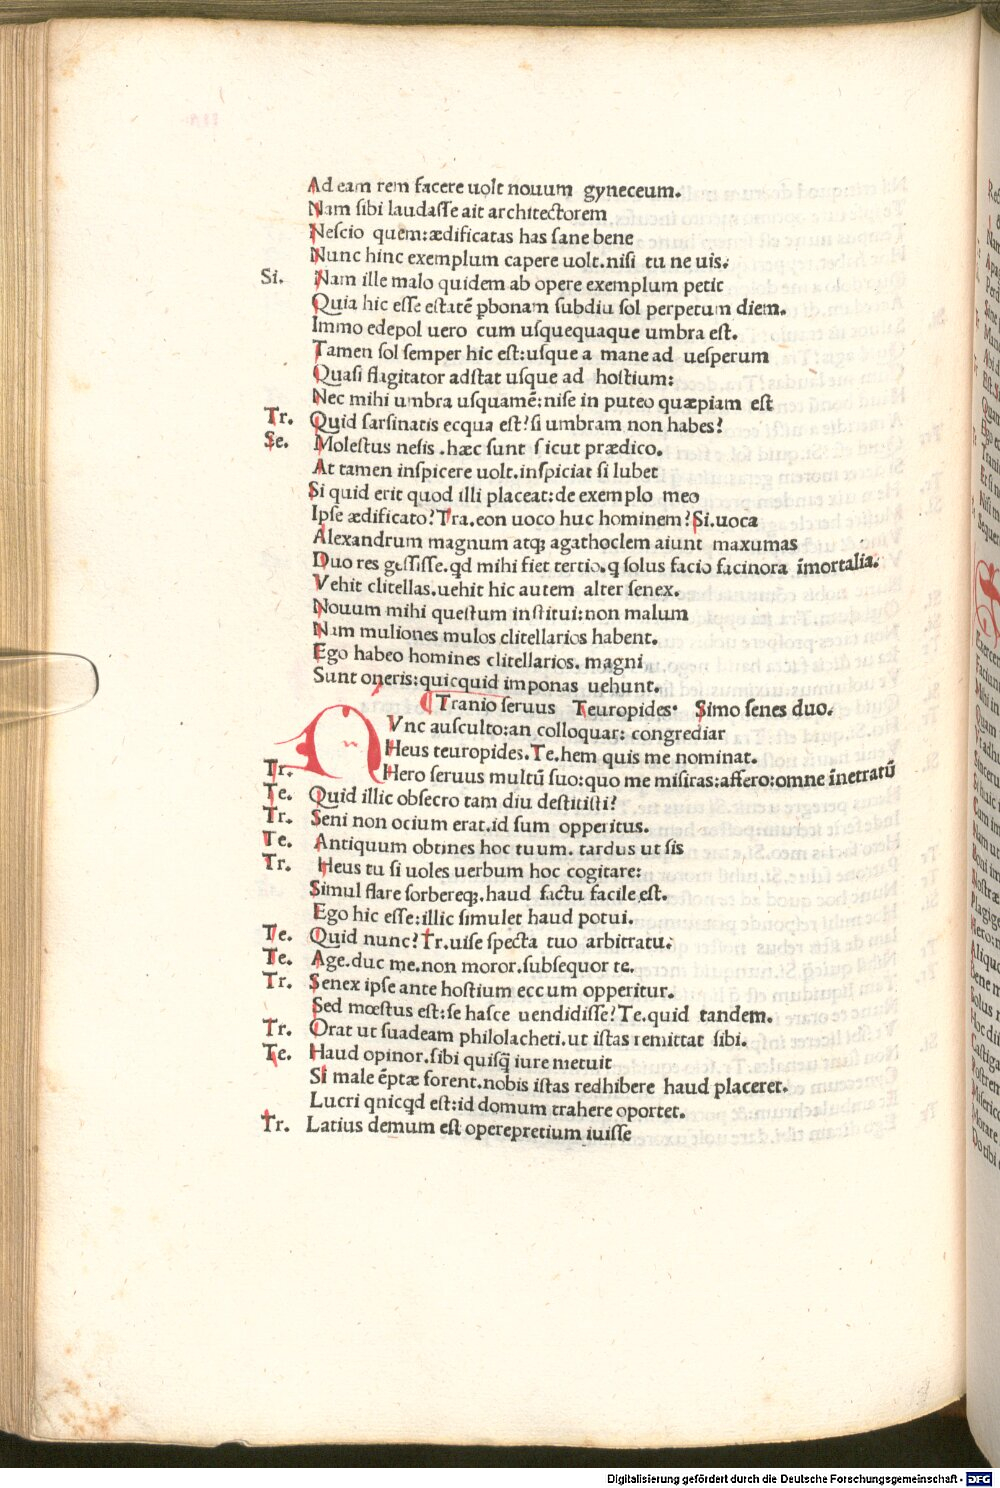 Ad eam rem facere uolt nouum gyneceum.
Nam sibi laudasse ait architectorem
Nescio quem:ædificatas has sane bene
Nunc hinc exemplum capere uolt.nisi tu ne uis.
Si. Nam ille malo quidem ab opere exemplum petit
Quia hic esse estatē ꝓbonam subdiu sol perpetum diem.
Immo edepol uero cum usquequaque umbra est.
Tamen sol semper hic est:usque a mane ad uesperum
Quasi flagitator adstat usque ad hostium:
Nec mihi umbra usquamē:nise in puteo quæpiam est
Tr. Quid sarsinatis ecqua est?si umbram non habes?
Se. Molestus nesis .hæc sunt sicut prædico.
At tamen inspicere uolt.inspiciat si lubet
Si quid erit quod illi placeat:de exemplo meo
Ipse ædificato?Tra.eon uoco huc hominem?Si.uoca
Alexandrum magnum atqꝫ agathoclem aiunt maxumas
Duo res gessisse.qd mihi fiet tertio.q solus facio facinora īmortalia.
Vehit clitellas.uehit hic autem alter senex.
Nouum mihi questum institui:non malum
Nam muliones mulos clitellarios habent.
Ego habeo homines clitellarios. magni
Sunt oneris:quicquid imponas uehunt.
¶ Tranio seruus Teuropides. Simo senes duo.
Vnc ausculto:an colloquar: congrediar
Heus teuropides.Te.hem quis me nominat.
Tr. Hero seruus multū suo:quo me misiras:affero:omne īnetratū
Te. Quid illic obsecro tam diu destitisti?
Tr. Seni non ocium erat.id sum opperitus.
Te. Antiquum obtines hoc tuum. tardus ut sis
Tr. Heus tu si uoles uerbum hoc cogitare:
Simul flare sorbereqꝫ.haud factu facile est.
Ego hic esse:illic simulet haud potui.
Te. Quid nunc?Tr.uise specta tuo arbitratu.
Te. Age.duc me.non moror.subsequor te.
Tr. Senex ipse ante hostium eccum opperitur.
Sed mœstus est:se hasce uendidisse?Te.quid tandem.
Tr. Orat ut suadeam philolacheti.ut istas remittat sibi.
Te. Haud opinor.sibi quisq̄ iure metuit
Si male ēptæ forent.nobis istas redhibere haud placeret.
Lucri qnicqd est:id domum trahere oportet.
Tr. Latius demum est operepretium iuisse
Digitalisierung gefördert durch die Deutsche Forschungsgemeinschaft - DFG